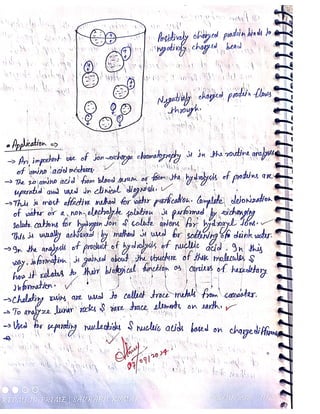 Positively charged protein binds to
negatively charged bead
Negatively charged protein flows
through.
* Application =>
→ An important use of ion-exchange chromatography is in the routine analyses
of amino acid mixtures.
→ The 20 amino acid from blood serum or from the hydrolysis of proteins are
seperated and used in clinical diagnosis.
→ This is most effective method for water purification. Complete deionisation
of water or a non-electrolyte solution is performed by exchanging
solute cations for hydrogen ion & solute anions for hydroxyl ions.
This is usually achieved by method is used for softening of drink water.
→ In the analysis of product of hydrolysis of nucleic acid. In this
way, information is gained about the structure of these molecules &
how it relates to their biological function as carriers of hereditary
Information.
→ Chelating resins are used to collect trace metals from
→ To analyze lunar rocks & rare trace elements on earth.
→ Used for separating nucleotides & nucleic acids based on charge difference
07/09/2024